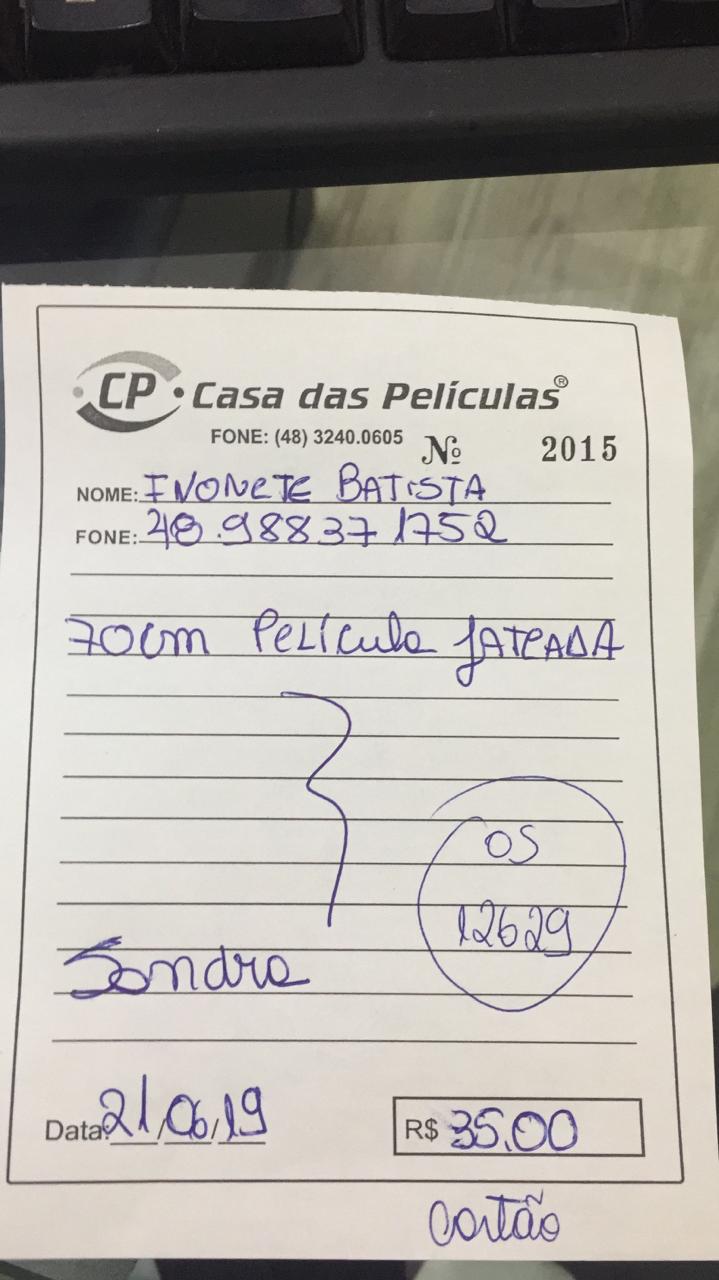 CP • Casa das Películas®
FONE: (48) 3240.0605 Nº 2015
NOME: IVONETE BATISTA
FONE: 48.98837 1752
70cm Película JATEADA
OS
12629
Sandra
Data: 21/06/19 R$ 35,00
Cartão